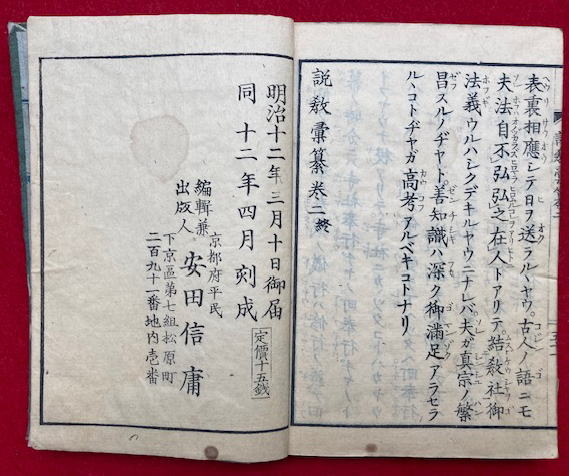 表裏相應シテ日ヲ送ラルハヤウ。古人ノ語ニモ
夫法自不弘弘之在人トアリテ。結敎社御
法義ウルハシクデキルヤウニナレバ夫ガ真宗ノ繁
昌スルノヂヤト善知識ハ深ク御滿足アラセラ
ル、コトヂヤガ高考アルベキコトナリ
説敎彙纂卷二終
明治十二年三月十日御届
同 十二年四月刻成
定價十五銭
京都府平民
編輯兼
出版人
安田信庸
下京區第七組松原町
二百九十一番地内壱番